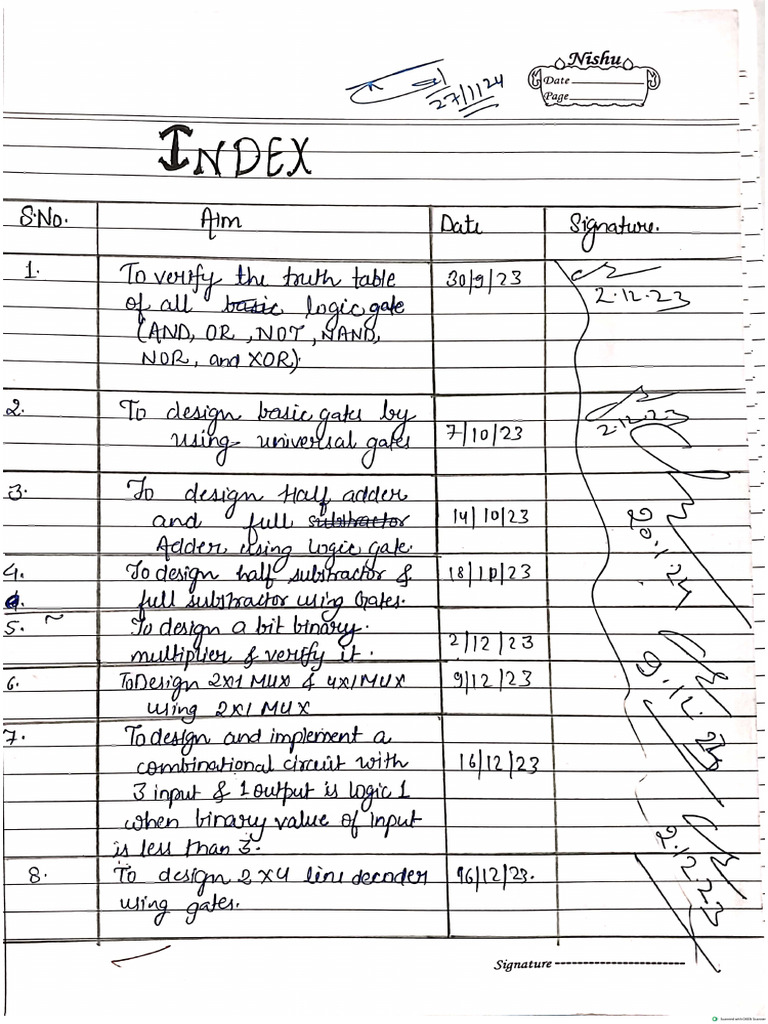 Nishu
Date
Page
27/1/24
INDEX
S.No. Aim Date Signature.
1. To verify the truth table 30/9/23
of all basic logic gate 2.12.23
(AND, OR, NOT, NAND,
NOR, and XOR).
2. To design basic gates by 2.12.23
using universal gates 7/10/23
3. To design Half adder
and full substractor 14/10/23 20.1.24
Adder using logic gate.
4. To design half substractor & 18/10/23
full substractor using Gates.
5. ~ To design a bit binary.
multiplier & verify it. 2/12/23
6. To Design 2x1 MUX & 4x1 MUX 9/12/23
using 2x1 MUX
7. To design and implement a
combinational circuit with 16/12/23
3 input & 1 output is logic 1
when binary value of input
is less than 3.
2.12.23
8. To design 2x4 line decoder 16/12/23.
using gates.
Signature
Scanned with OKEN Scanner